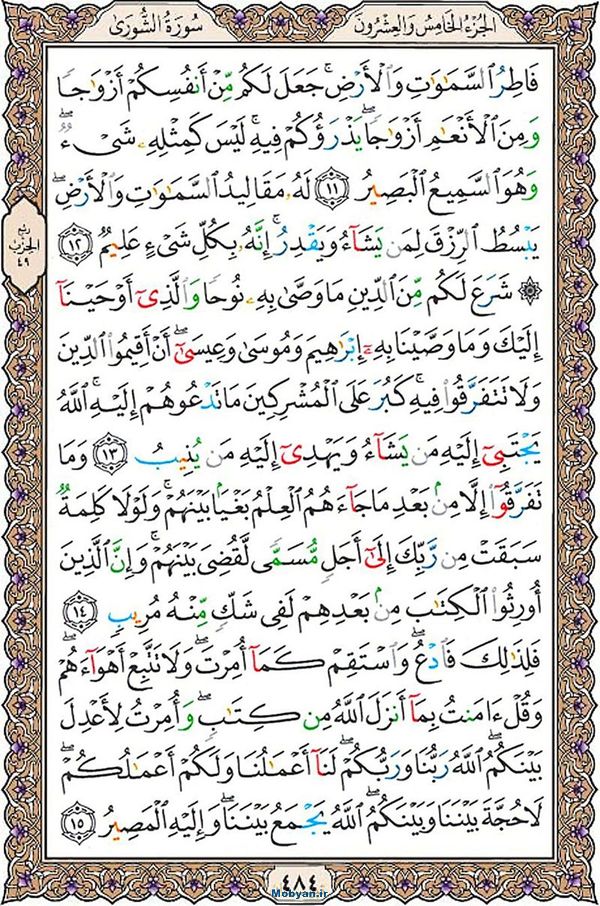 الجزء الخامس والعشرون
سورة الشورى
فَاطِرُ السَّمَٰوَٰتِ وَالْأَرْضِ ۚ جَعَلَ لَكُم مِّنْ أَنفُسِكُمْ أَزْوَٰجًا
وَمِنَ الْأَنْعَٰمِ أَزْوَٰجًا ۖ يَذْرَؤُكُمْ فِيهِ ۚ لَيْسَ كَمِثْلِهِۦ شَىْءٌ ۖ
وَهُوَ السَّمِيعُ الْبَصِيرُ ﴿١١﴾ لَهُۥ مَقَالِيدُ السَّمَٰوَٰتِ وَالْأَرْضِ ۖ
يَبْسُطُ الرِّزْقَ لِمَن يَشَآءُ وَيَقْدِرُ ۚ إِنَّهُۥ بِكُلِّ شَىْءٍ عَلِيمٌ ﴿١٢﴾
ربع
الحزب
٤٩
۞ شَرَعَ لَكُم مِّنَ الدِّينِ مَا وَصَّىٰ بِهِۦ نُوحًا وَالَّذِىٓ أَوْحَيْنَآ
إِلَيْكَ وَمَا وَصَّيْنَا بِهِۦٓ إِبْرَٰهِيمَ وَمُوسَىٰ وَعِيسَىٰٓ ۖ أَنْ أَقِيمُوا۟ الدِّينَ
وَلَا تَتَفَرَّقُوا۟ فِيهِ ۚ كَبُرَ عَلَى الْمُشْرِكِينَ مَا تَدْعُوهُمْ إِلَيْهِ ۚ اللَّهُ
يَجْتَبِىٓ إِلَيْهِ مَن يَشَآءُ وَيَهْدِىٓ إِلَيْهِ مَن يُنِيبُ ﴿١٣﴾ وَمَا
تَفَرَّقُوٓا۟ إِلَّا مِنۢ بَعْدِ مَا جَآءَهُمُ الْعِلْمُ بَغْيًۢا بَيْنَهُمْ ۚ وَلَوْلَا كَلِمَةٌ
سَبَقَتْ مِن رَّبِّكَ إِلَىٰٓ أَجَلٍ مُّسَمًّى لَّقُضِىَ بَيْنَهُمْ ۚ وَإِنَّ الَّذِينَ
أُورِثُوا۟ الْكِتَٰبَ مِنۢ بَعْدِهِمْ لَفِى شَكٍّ مِّنْهُ مُرِيبٍ ﴿١٤﴾
فَلِذَٰلِكَ فَادْعُ ۖ وَاسْتَقِمْ كَمَآ أُمِرْتَ ۖ وَلَا تَتَّبِعْ أَهْوَآءَهُمْ ۖ
وَقُلْ ءَامَنتُ بِمَآ أَنزَلَ اللَّهُ مِن كِتَٰبٍ ۖ وَأُمِرْتُ لِأَعْدِلَ
بَيْنَكُمُ ۖ اللَّهُ رَبُّنَا وَرَبُّكُمْ ۖ لَنَآ أَعْمَٰلُنَا وَلَكُمْ أَعْمَٰلُكُمْ ۖ
لَا حُجَّةَ بَيْنَنَا وَبَيْنَكُمُ ۖ اللَّهُ يَجْمَعُ بَيْنَنَا ۖ وَإِلَيْهِ الْمَصِيرُ ﴿١٥﴾
٤٨٤
Mobyan.ir